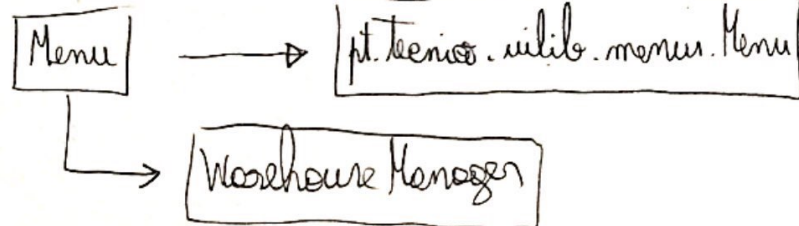 Menu
pt.tecnico.uilib.menus.Menu
WarehouseManager